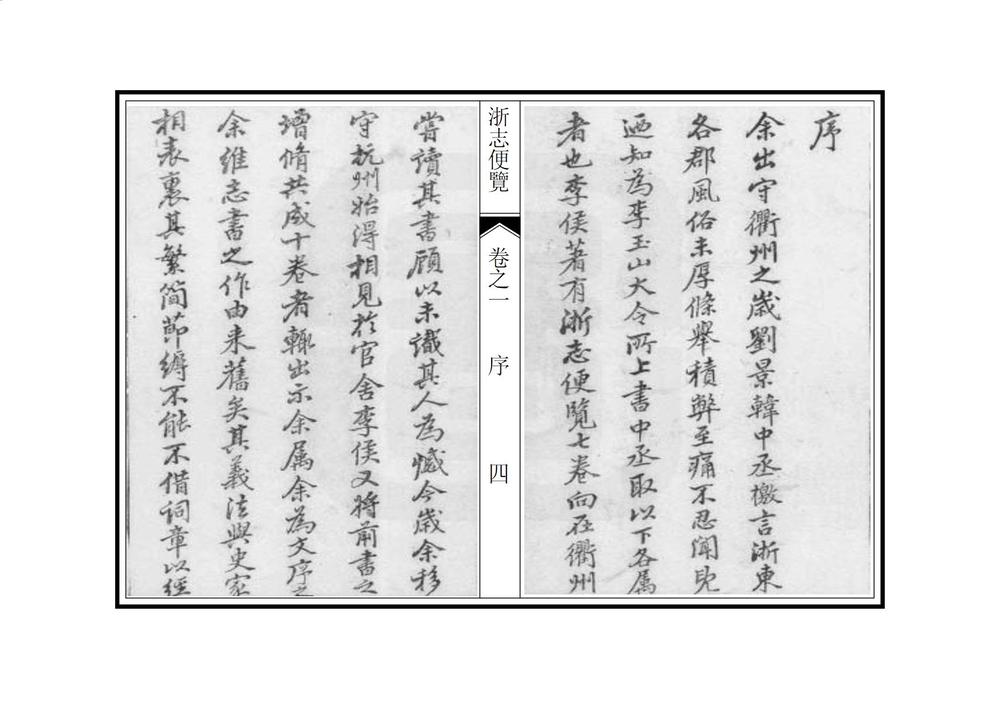 序
余出守衢州之歲劉景韓中丞檄言浙東
各郡風俗未厚條舉積弊至痛不忍聞見
迺知為李玉山大令所上書中丞取以下各属
者也李侯著有浙志便覽七卷向在衢州
浙志便覽
卷之一
序
四
嘗讀其書顧以未識其人為憾今歲余移
守杭州始得相見於官舍李侯又將前書之
增脩共成十卷者輙出示余属余為文序之
余維志書之作由来舊矣其義法與史家
相表裏其繁简節縟不能不借詞章以經